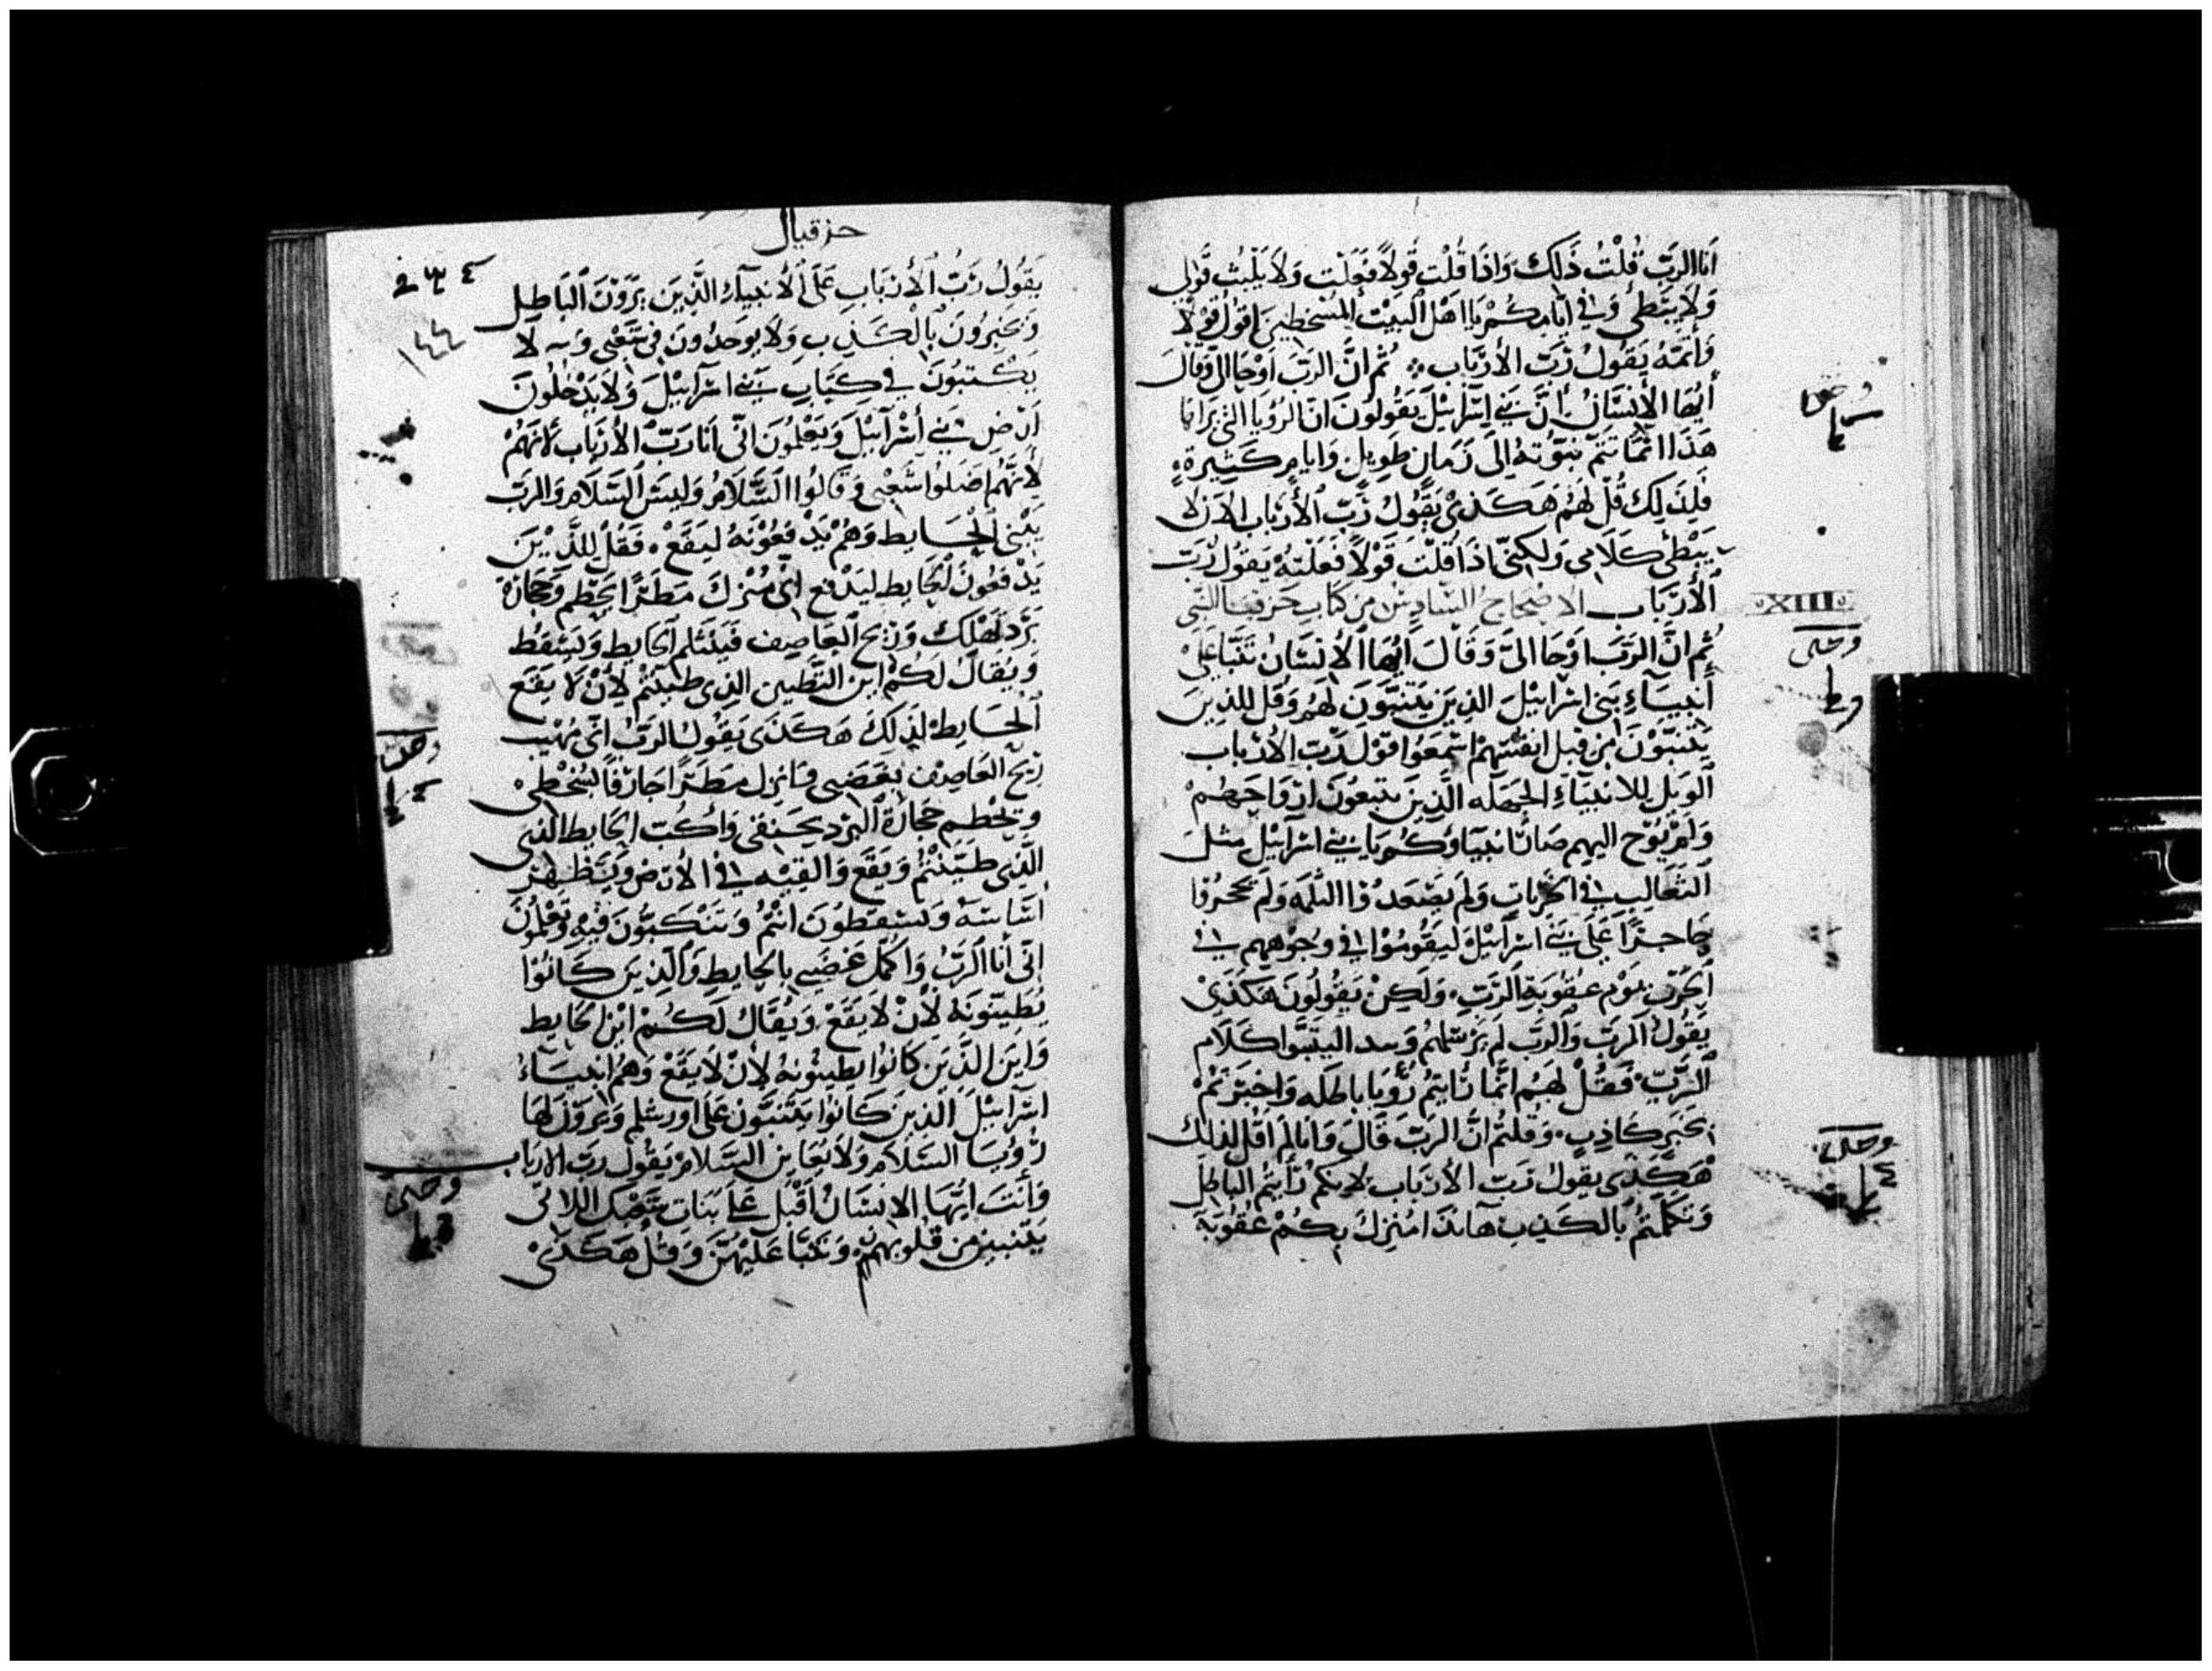 اَنَا الرَبّ قُلْتُ ذَلِكَ وَاذَا قُلْتُ قَولاً فَعَلْت وَلَا يَلْبُث قَولِى
وَلَا يَبَطئ وَفِي اَيَّامِكُمْ يَا اهْل البَيْت المُسْخطِين اقُولُ قَوْلاً
وَأتمّهُ يَقُولُ رَبّ الأرْبَاب ثُمّ انَّ الرَبّ اوْحَا الىّ وَقَالَ
أيُّهَا الأنسَانُ انَّ بَنِي اسْرَآئِيْلَ يَقُولُونَ انّ الرُويَا التى يَرَاهَا
هَذَا انَّمَا تتَمّ نبوّتهُ اِلَى زَمَانٍ طَوِيلٍ وَايامٍ كَثِيرةٍ
فَلِذَلِكَ قُلْ لَهُمْ هَكَذَى يَقُولُ رَبّ الأرْبَاب الانْ لا
يَبْطئ كَلَامِى وَلكِنّى اذَا قُلْت قَوْلاً فَعَلْتهُ يَقُولُ رَبّ
الأرْبَاب الاصْحاحُ السّادِسُ مِن كِتَابِ حَزقيال النّبى
ثُم انَّ الرَبّ اوْحَا الىّ وَقَالَ ايُّهَا الأنسَانُ تَنَبّا عَلَى
أَنبِيَآءِ بَنى اسْرَائِيْلَ الذِينَ يتَنبّوْنَ لَهُم وَقُل لِلذِينَ
يَتنبّوْنَ مِن قِبل انفُسهِمْ اسْمَعُوا قَوْلَ رَبّ الأرْبَاب
الوَيل للانبيَاءِ الجَهَله الَّذِينَ يتبعُونَ ارْوَاحَهُمْ
وَلَمْ يُوْحَ اليهِم صَارَ انبيَاوُكُم يَا بَنِي اسْرَآئِيْل مثلَ
الثَعَالِبِ فِي الخَرِبَاتِ وَلَم يَصْعَدُوْا الثلمَه وَلَم يحجرُوا
حَاجزًا عَلَى بَنِي اسْرَآئِيْلَ ليَقُومُوْا فِي وُجُوْهِهم فِي
الحَرْبِ يَوْم عقُوبَةِ الرَبّ وَلَكِنْ يَقُولُونَ هَكَذَى
يَقُولُ الرَبّ وَالرَبّ لَم يَرْسِلهُم كَلَام
الرَّبّ فَقُلْ لهَمُ انَّمَا رَايتُم رُؤْيَا بَاطلَه وَاخبَرْتمْ
بخَبَرٍ كَاذِبٍ وَقُلتُمْ انَّ الرَبّ قَالَ وَانَا لَم اقُل لذلِك
هَكَذَى يَقُولُ رَبّ الأرْبَاب لانكُم رَأيتُم البَاطِلَ
وَتكلّمتُم بَالكَذِب هَآنذَا مُنزلٌ بِكُمْ عقُوبَة
XIII
حزقيال
١٤٤
يَقُولُ رَبُّ الأرْبَابِ عَلَى الأنبِيَآءِ الَّذِينَ يَرَوْنَ البَاطِل
وَيخبِرُونَ بِالكَذِبِ وَلا يوجدُونَ فِى شَعْبى وَلا
يَكْتبُونَ فِي كِتَابِ بَنِي اسْرَآئِيْلَ وَلَا يَدْخلُونَ
اَرْض بَنِي أسْرَآئِيْلَ وَيَعْلمُونَ انّى أنَا رَبّ الأرْبَاب لانهُمْ
لأنهُم اضَلوا شَعْبى وَقَالُوا السَّلَامُ وَليسَ السَّلَام وَالرَبّ
يَبْنى الحَايط وَهُمْ يَدْفعُوْنَهُ ليَقَعْ فَقُلْ لِلَّذِيْنَ
يَدْفعُونَ الحَايط ليَدْفع انى مُنْزلٌ مَطَرًا يحَطّم وَحجَارة
بَرْد تَهْلِكْ وَرِيح العَاصِف فَيَنثلم الحَايط وَيَسْقُط
وَيُقَالُ لكُمْ اين التَطْيِين الذِى طَيّنتُمْ لأنْ لَا يَقَع
الحَايط لِذلِكَ هَكَذَى يَقُولُ الرَبّ انّى مُهيّب
رِيْح العَاصِف بغَضَبِى وَانزل مَطَرًا جَارْفًا بسُخْطِى
وَيحْطم حجَارَة البَرْد بحَنقى وَأكُبّ الحَايط الذى
الَّذِى طيّنتُمْ وَيَقَعْ وَالقِيْه فِي الأرْض وَيَظْهَر
اسَاسَهُ وَتسْقطوُنَ انْتُمْ وَتنكبُّونَ فيْهِ وَتَعْلمُونَ
انى أنَا الرَبُّ وَاكمّل غضَبِى بالحَايط وَالَّذِينَ كَانُوْا
يُطَيّنونَهُ لأنْ لَا يَقَعْ وَيُقَالُ لكُمْ اين الحَايط
وَاينَ الَّذِينَ كَانُوا يطينُونهُ لأن لَا يَقَعْ وَهُم انبيَاءُ
اسْرَآئِيْلَ الَّذِينَ كَانُوا يَتَنبّون عَلَى اورشلم وَيرَوْنَ لهَا
رُؤيَا السَّلَام وَلا يعَاين السَّلام يَقُولُ رَبّ الارباب
وَأنتَ ايّهَا الانسَانُ اقْبل عَلَى بَنَات شَعْبك اللاتى
يَتنبين مِن قلُوبهنّ وَتَنَبّا عَليْهنّ وَقُلْ هَكَذَى